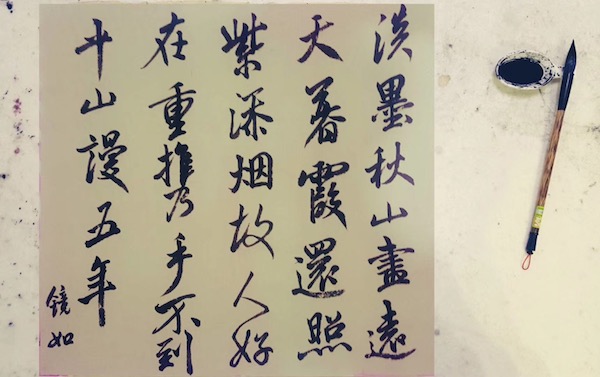 淡墨秋山盡遠
天暮霞還照
紫添烟故人好
在重攜手不到
平山謾五年
鏡如